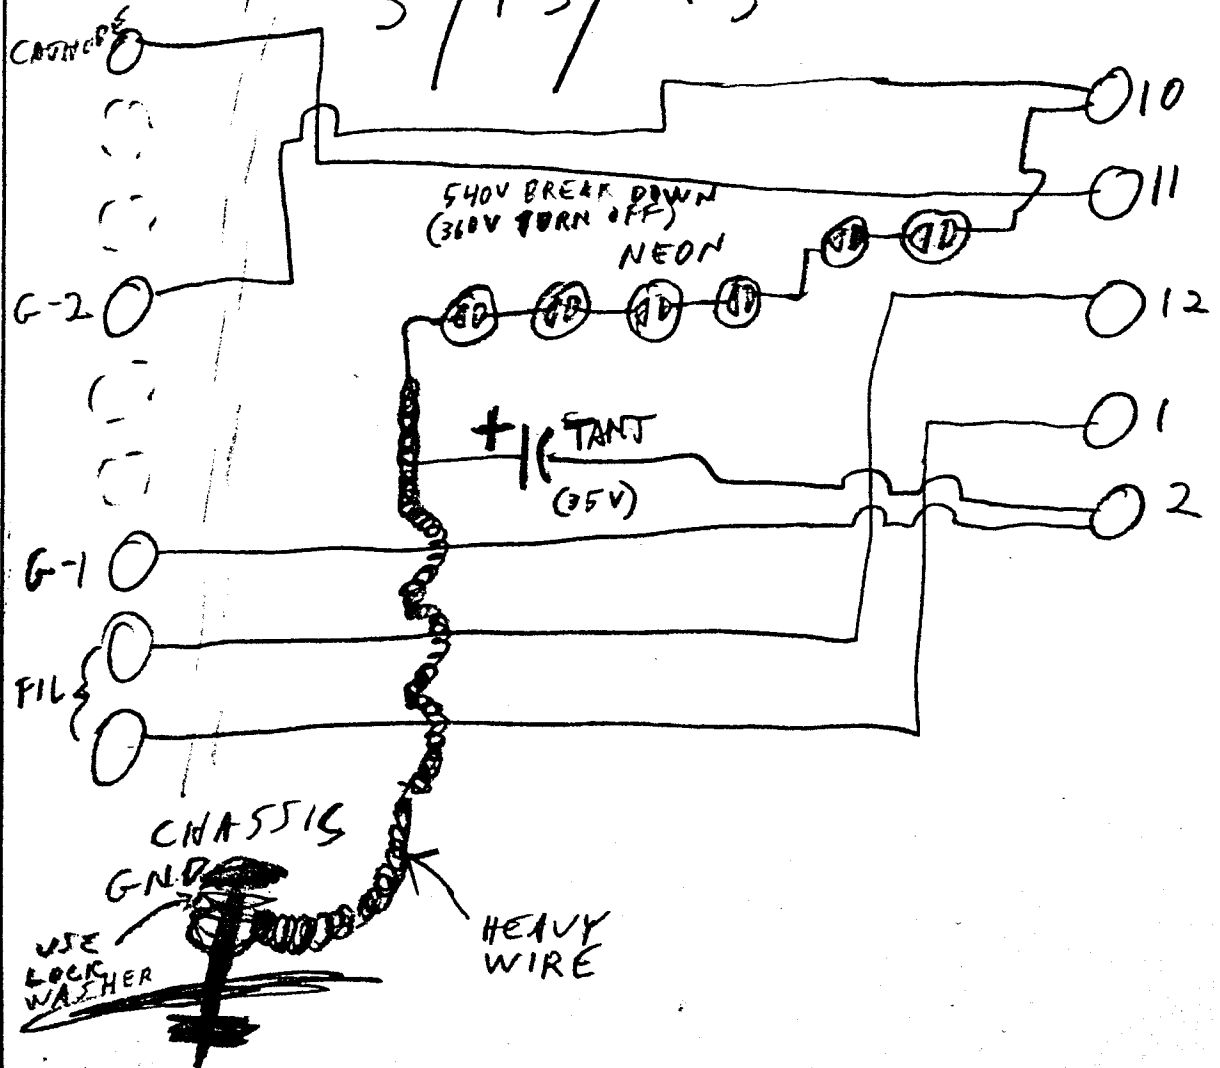 CATHODE
10
11
540V BREAK DOWN
(360V TURN OFF)
NEON
G-2
12
1
+
TANT
(35V)
2
G-1
FIL
CHASSIS
GND
USE
LOCK
WASHER
HEAVY
WIRE